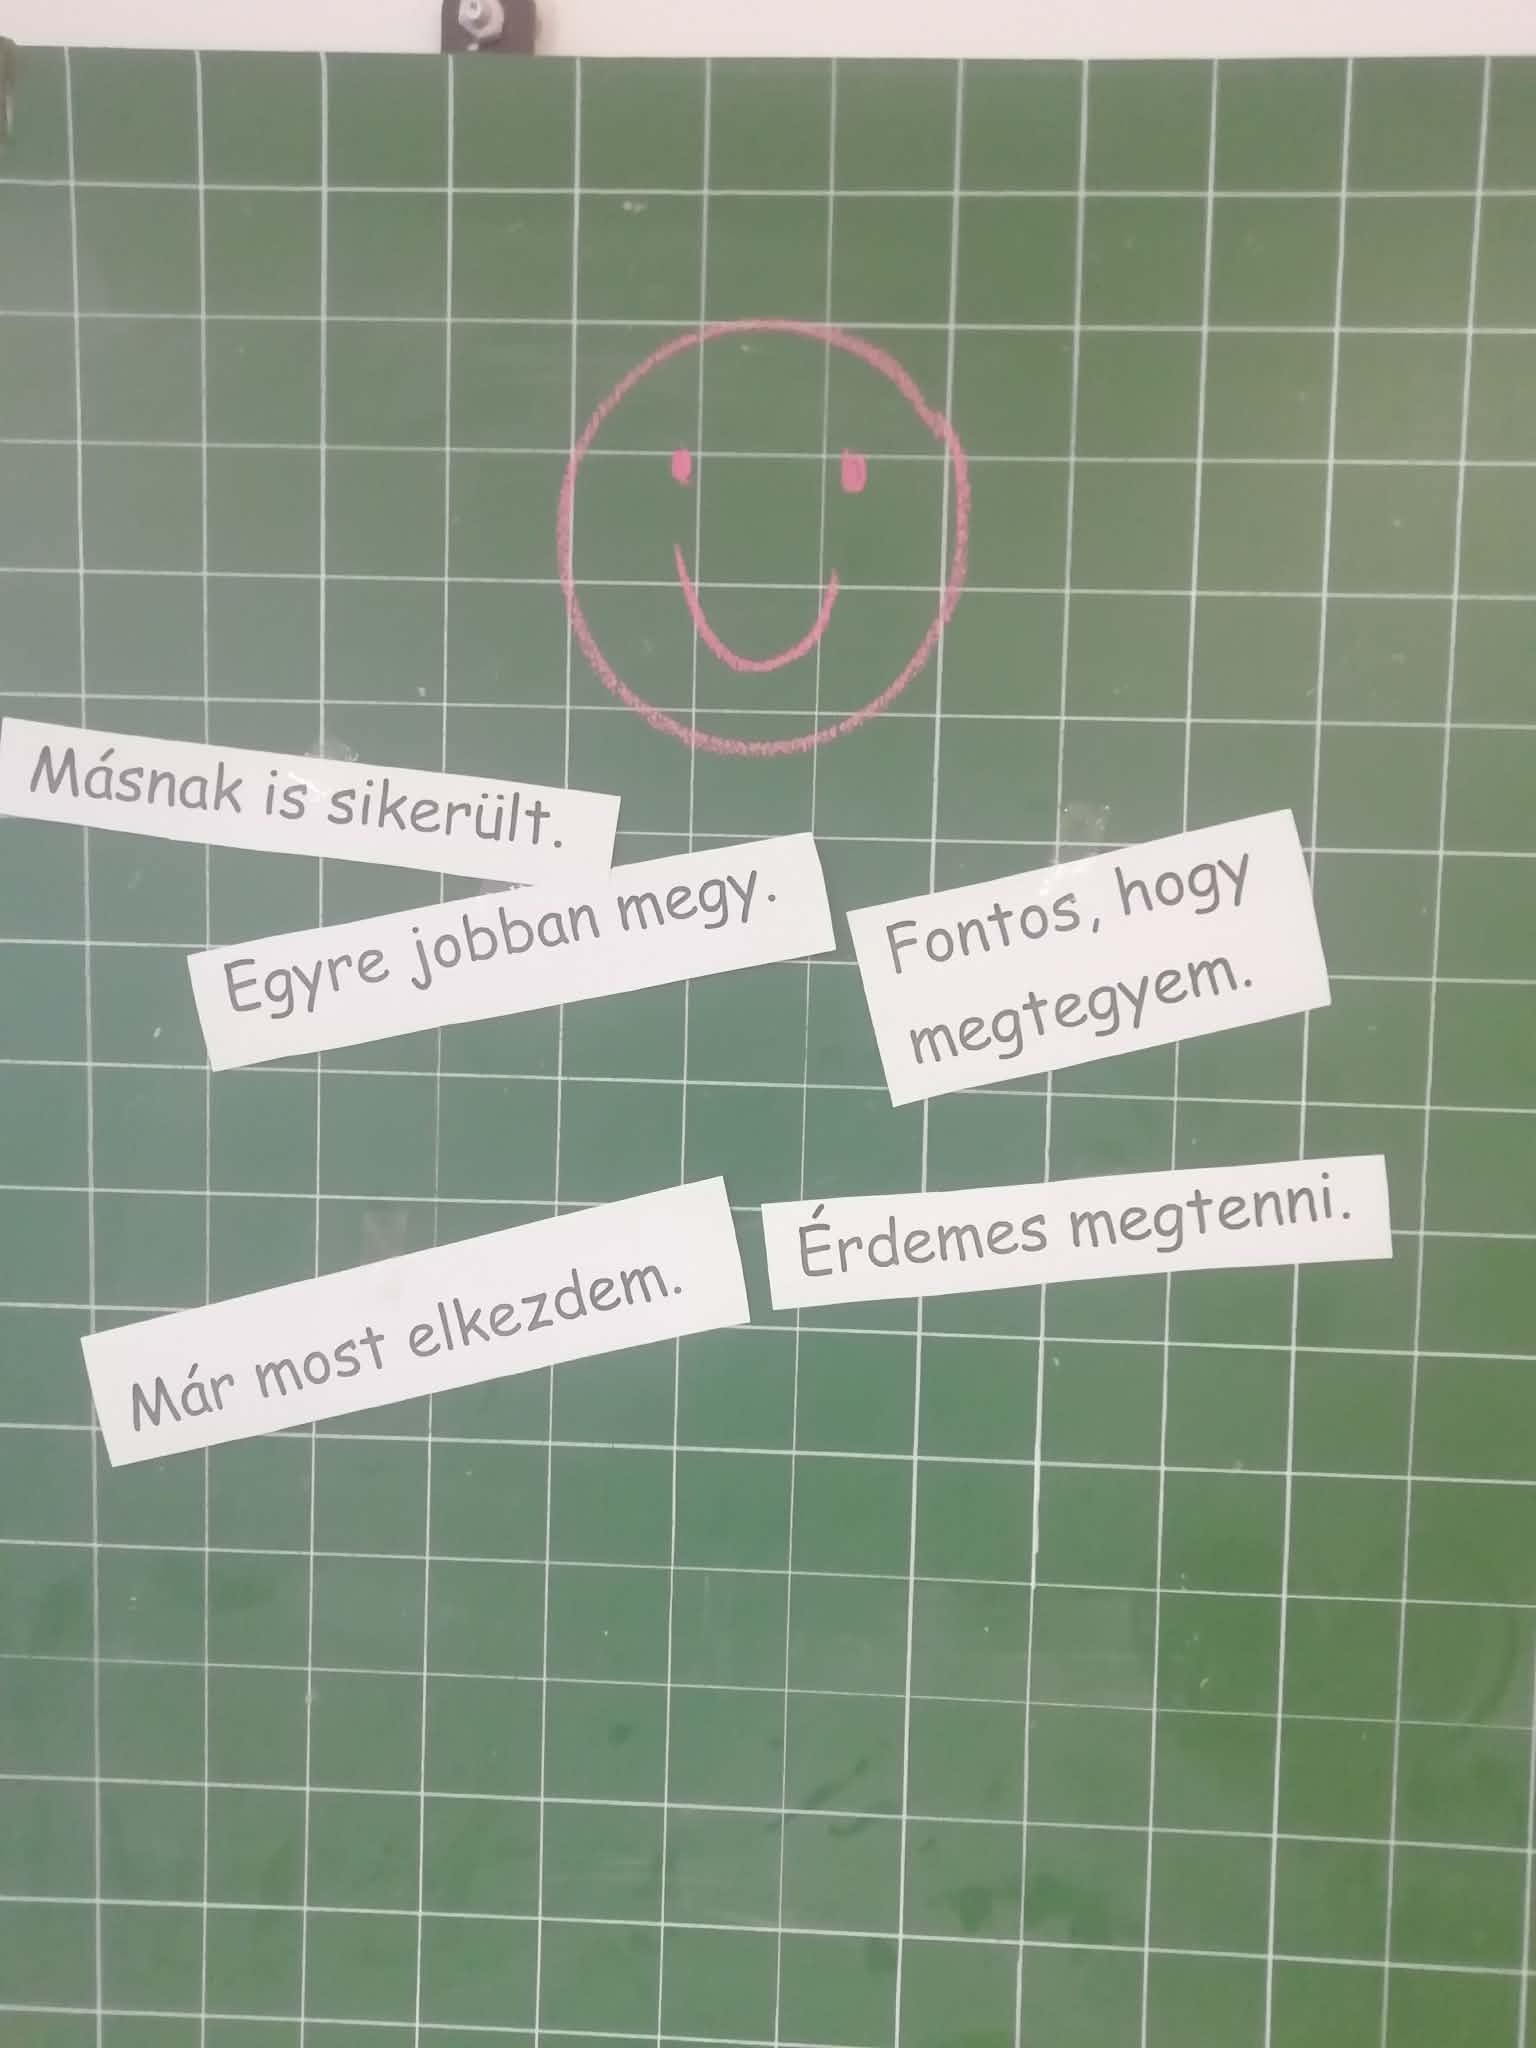 Másnak is sikerült.
Egyre jobban megy.
Fontos, hogy
megtegyem.
Már most elkezdem.
Érdemes megtenni.